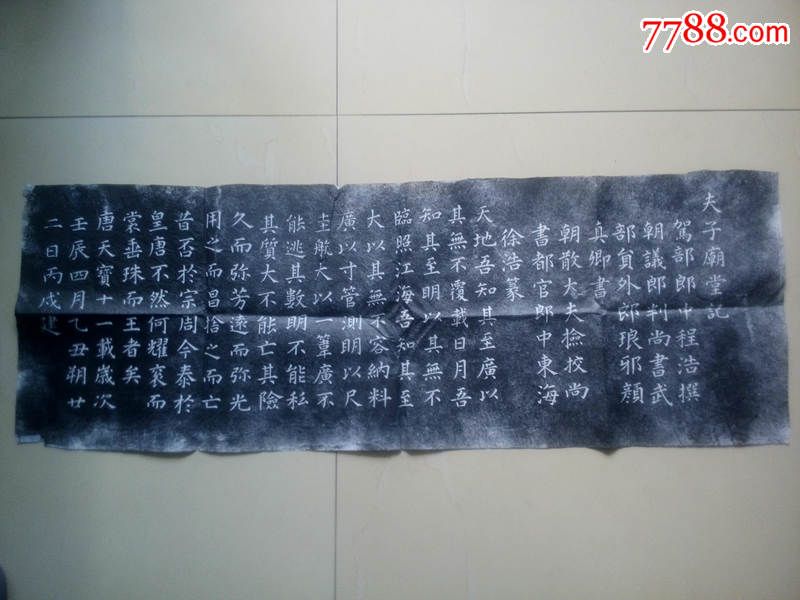 7788.com
夫子廟堂記
駕部郎中程浩撰
朝議郎判尚書武
部貟外郎琅邪顏
真卿書
朝散大夫撿挍尚
書都官郎中東海
徐浩篆
天地吾知其至廣以
其無不覆載日月吾
知其至明以其無不
臨照江海吾知其至
大以其無不容納料
廣以寸管測明以尺
圭航大以一葦廣不
能逃其數明不能私
其質大不能亡其險
久而弥芳遠而弥光
用之而昌捨之而亡
昔否於宗周今泰於
皇唐不然何耀衮而
裳垂珠而王者矣
唐天寶十一載歲次
壬辰四月乙丑朔廿
二日丙戍建